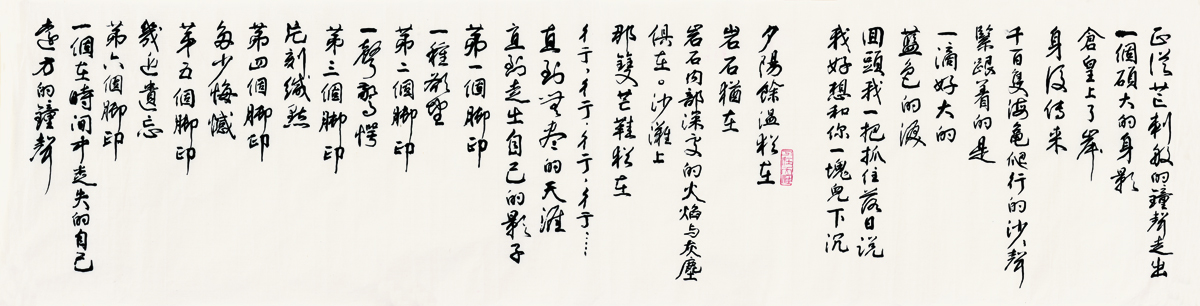 正從芒刺般的鐘聲走出
一個碩大的身影
倉皇上了岸
身後傳來
千百隻海龜爬行的沙沙聲
緊跟着的是
一滴好大的
藍色的淚
回頭我一把抓住落日說
我好想和你一塊兒下沉
夕陽餘溫猶在
岩石猶在
岩石內部深處的火焰與灰塵
俱在。沙灘上
那雙芒鞋猶在
彳亍,彳亍,彳亍,彳亍……
直到無盡的天涯
直到走出自己的影子
第一個脚印
一種欲望
第二個脚印
一聲驚愕
第三個脚印
片刻緘默
第四個脚印
多少悔憾
第五個脚印
幾近遺忘
第六個脚印
一個在時間中走失的自己
遠方的鐘聲